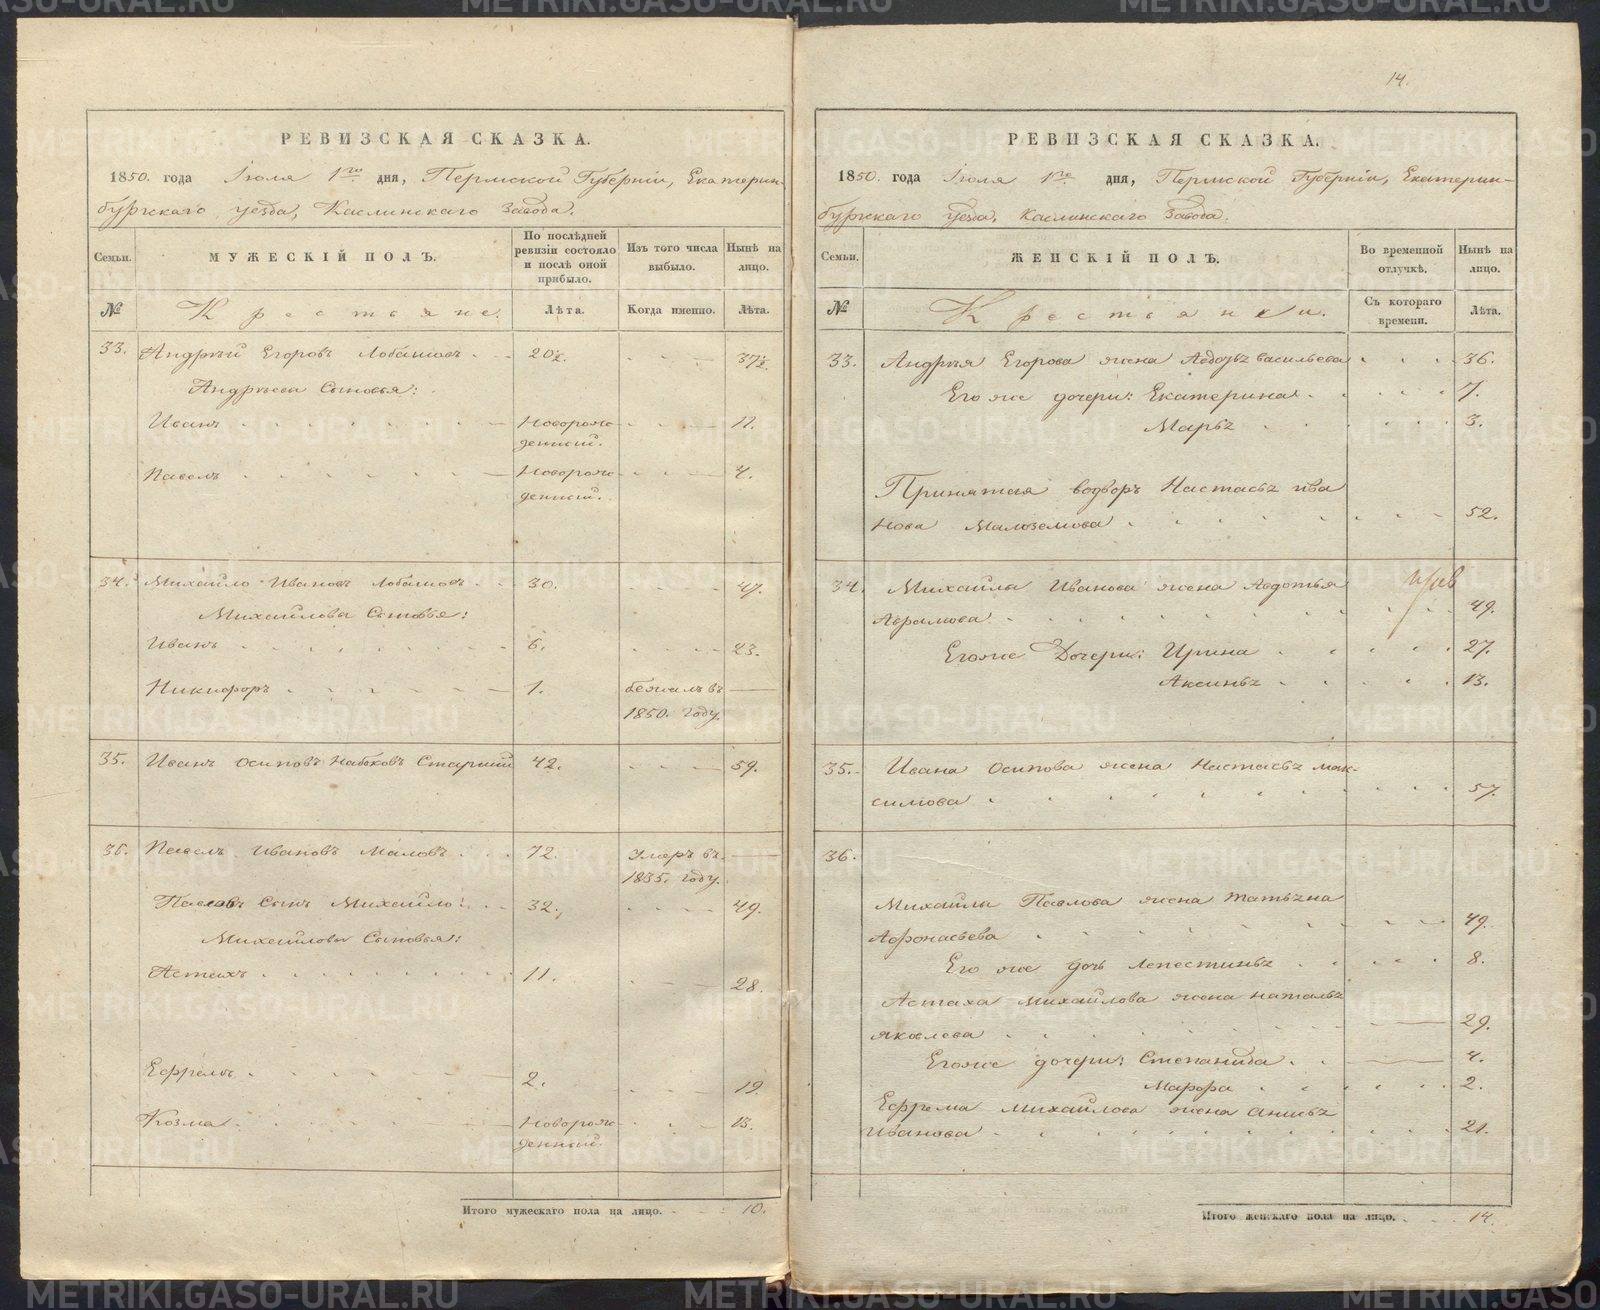 РЕВИЗСКАЯ СКАЗКА.
1850. года Іюля 1го дня, Пермской Губерніи, Екатерин-
бургскаго уезда, Каслинскаго Завода.
Семьи. МУЖЕСКІЙ ПОЛЪ. По послѣдней ревизіи состояло и послѣ оной прибыло. Изъ того числа выбыло. Нынѣ на лицо.
№ Крестьяне. Лѣта. Когда именно. Лѣта.
33. Андрѣй Егоровъ Лобашовъ 20½. 37½.
Андрѣева Сыновья:
Иванъ Новорож- 11.
денный.
Павелъ Новорож- 4.
денный.
34. Михайло Ивановъ Лобашовъ 30. 47.
Михайловы Сыновья:
Иванъ 6. 23.
Никифоръ 1. бежалъ въ
1850. году.
35. Иванъ Осиповъ Набоковъ Старший 42. 59.
36. Павелъ Ивановъ Маловъ 72. Умеръ въ
1835. году.
Павловъ Сынъ Михайло: 32. 49.
Михайловы Сыновья:
Астахъ 11. 28.
Ефремъ 2. 19.
Козма Новорож- 13.
денный.
Итого мужескаго пола на лицо. 10.
14.
РЕВИЗСКАЯ СКАЗКА.
1850. года Іюля 1го дня, Пермской Губерніи, Екатерин-
бургскаго Уезда, Каслинскаго Завода.
Семьи. ЖЕНСКІЙ ПОЛЪ. Во временной отлучкѣ. Нынѣ на лицо.
№ Крестьянки. Съ котораго времени. Лѣта.
33. Андрѣя Егорова жена Авдотьѣ Васильева 36.
Его же дочери: Екатерина 7.
Марьѣ 3.
Принятая водворъ Настасьѣ Ива
нова Малоземова 52.
34. Михайлы Иванова жена Авдотья
Абрамова 49.
Егоже Дочери: Ирина 27.
Аксиньѣ 13.
35. Ивана Осипова жена Настасьѣ Мак-
симова 57.
36.
Михайлы Павлова жена Татьяна
Афонасьева 49.
Его же дочь Лепестиньѣ 8.
Астаха Михайлова жена Натальѣ
Яковлева 29.
Егоже дочери: Степанида 4.
Марфа 2.
Ефрема Михайлова жена Анисьѣ
Иванова 21.
Итого женскаго пола на лицо. 14.
METRIKI.GASO-URAL.RU